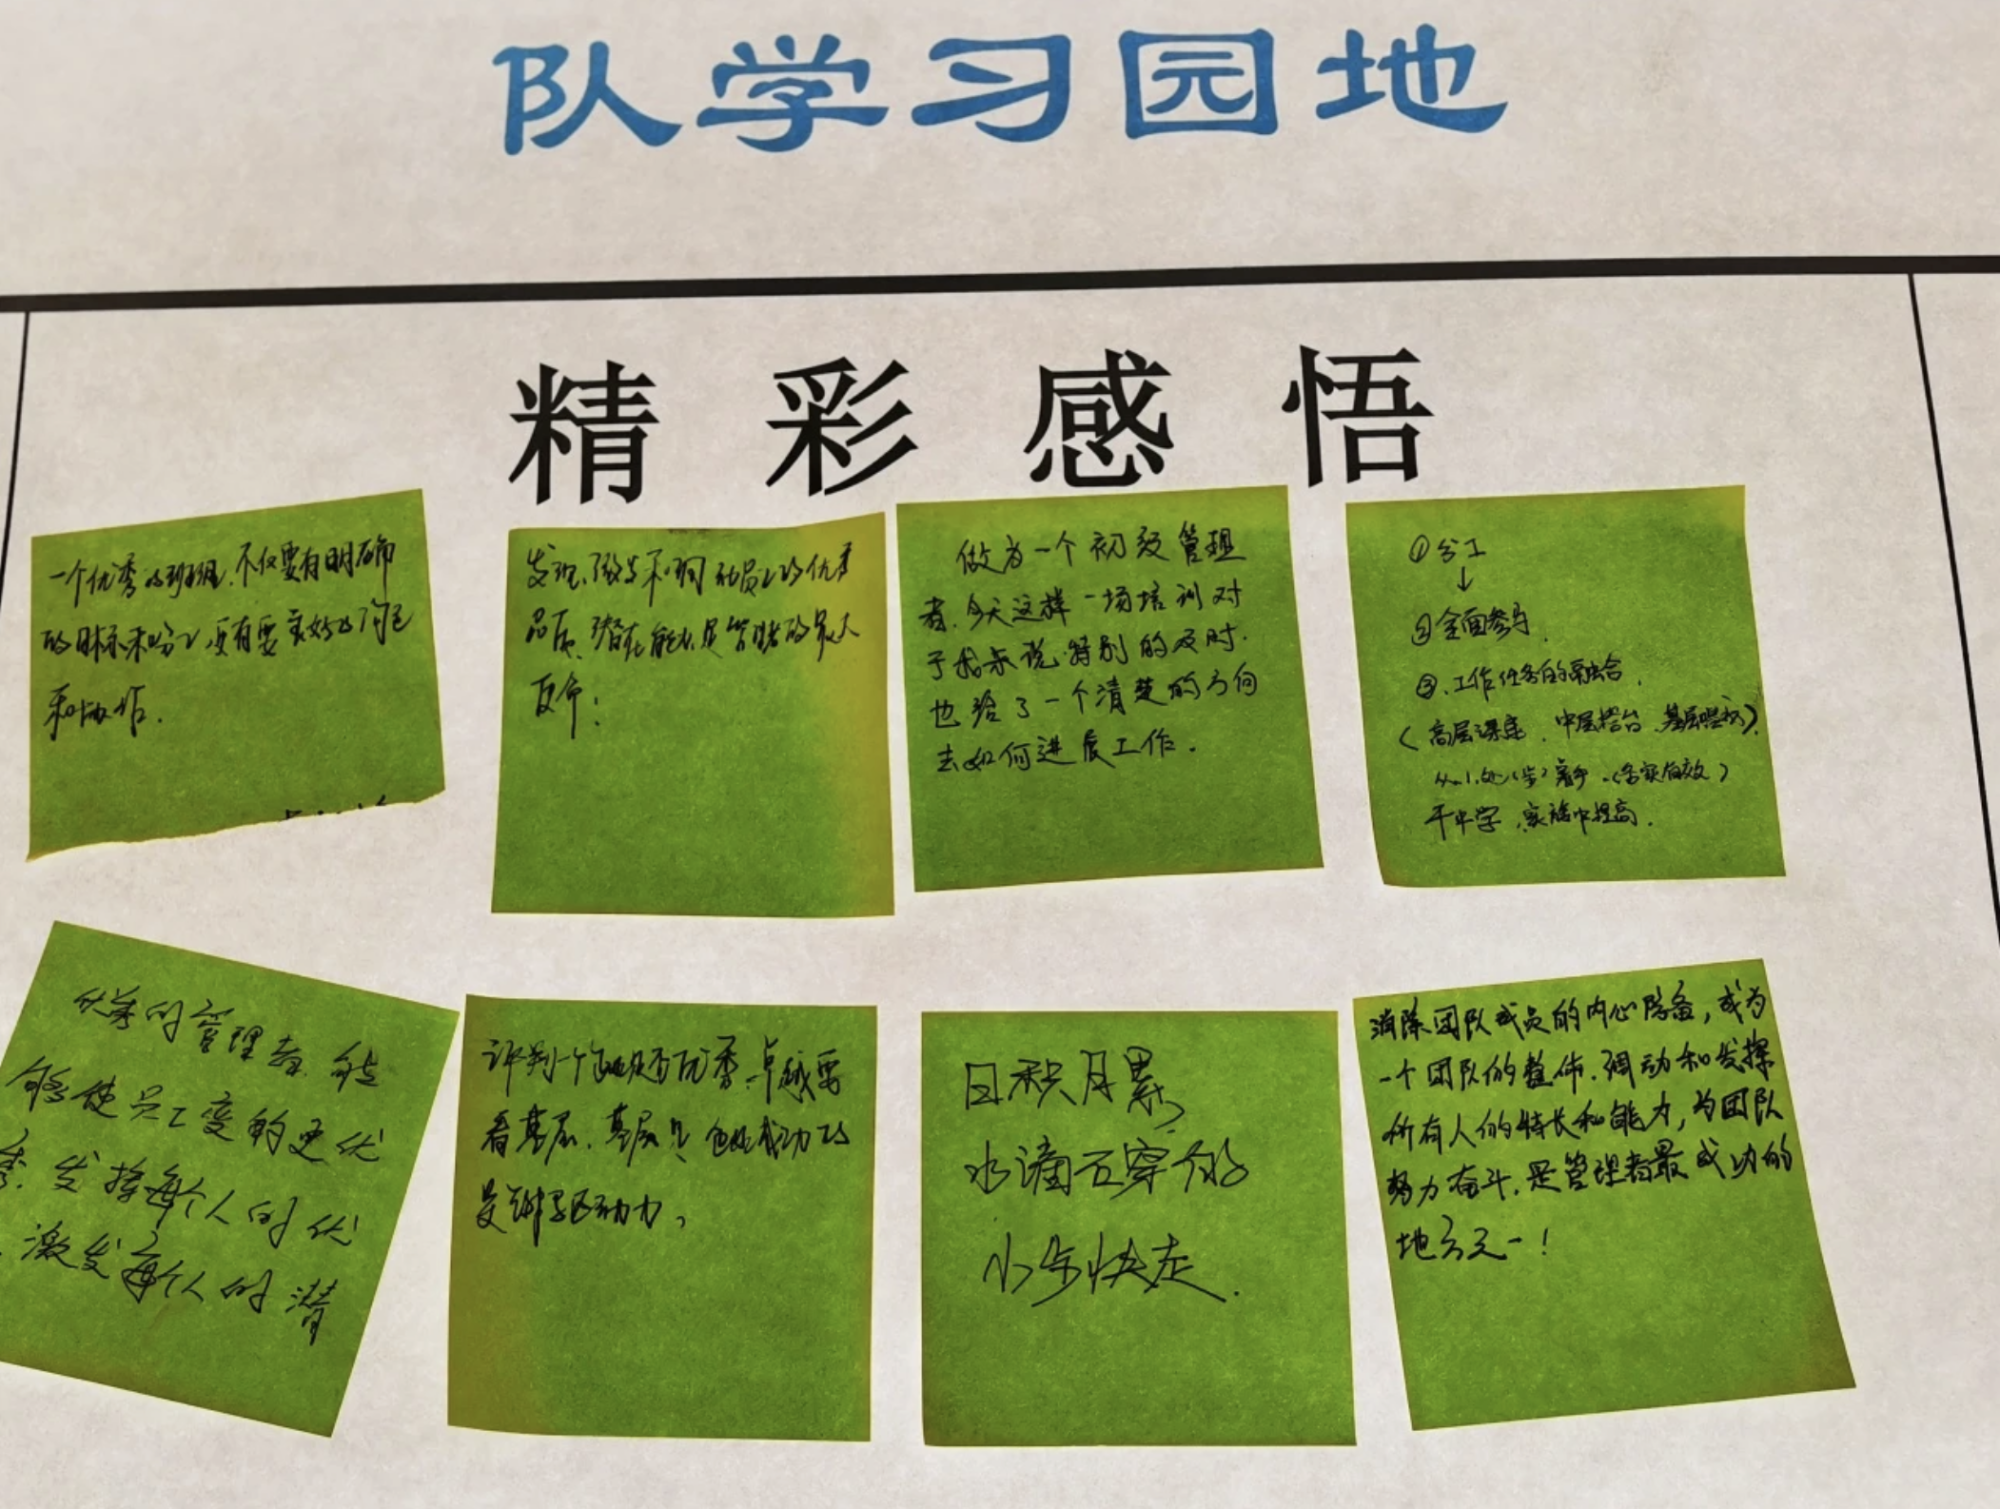 队学习园地
精彩感悟
一个优秀的班组,不仅要有明确
的目标和分工,更有要良好的沟通
和协作.
发现、激发不同动员工的优秀
品质、潜在能力是管理者的最大
使命:
做为一个初级管理
者.今天这样一场培训对
于我来说特别的及时.
也给了一个清楚的方向
去如何进展工作.
①分工
↓
②全面参与.
③.工作任务的融合.
(高层谋定.中层搭台.基层唱戏).
(务实有效)
干中学,实施中提高.
优秀的管理者,能
够使员工变的更优
秀.发挥每个人的优
激发每个人的潜
评判一个是否优秀.卓越要
看基层.基层
是驱动力,
日积月累,
水滴石穿
小步快走.
消除团队成员的内心防备,成为
一个团队的整体.调动和发挥
所有人的特长和能力,为团队
努力奋斗.是管理者最成功的
地方之一!